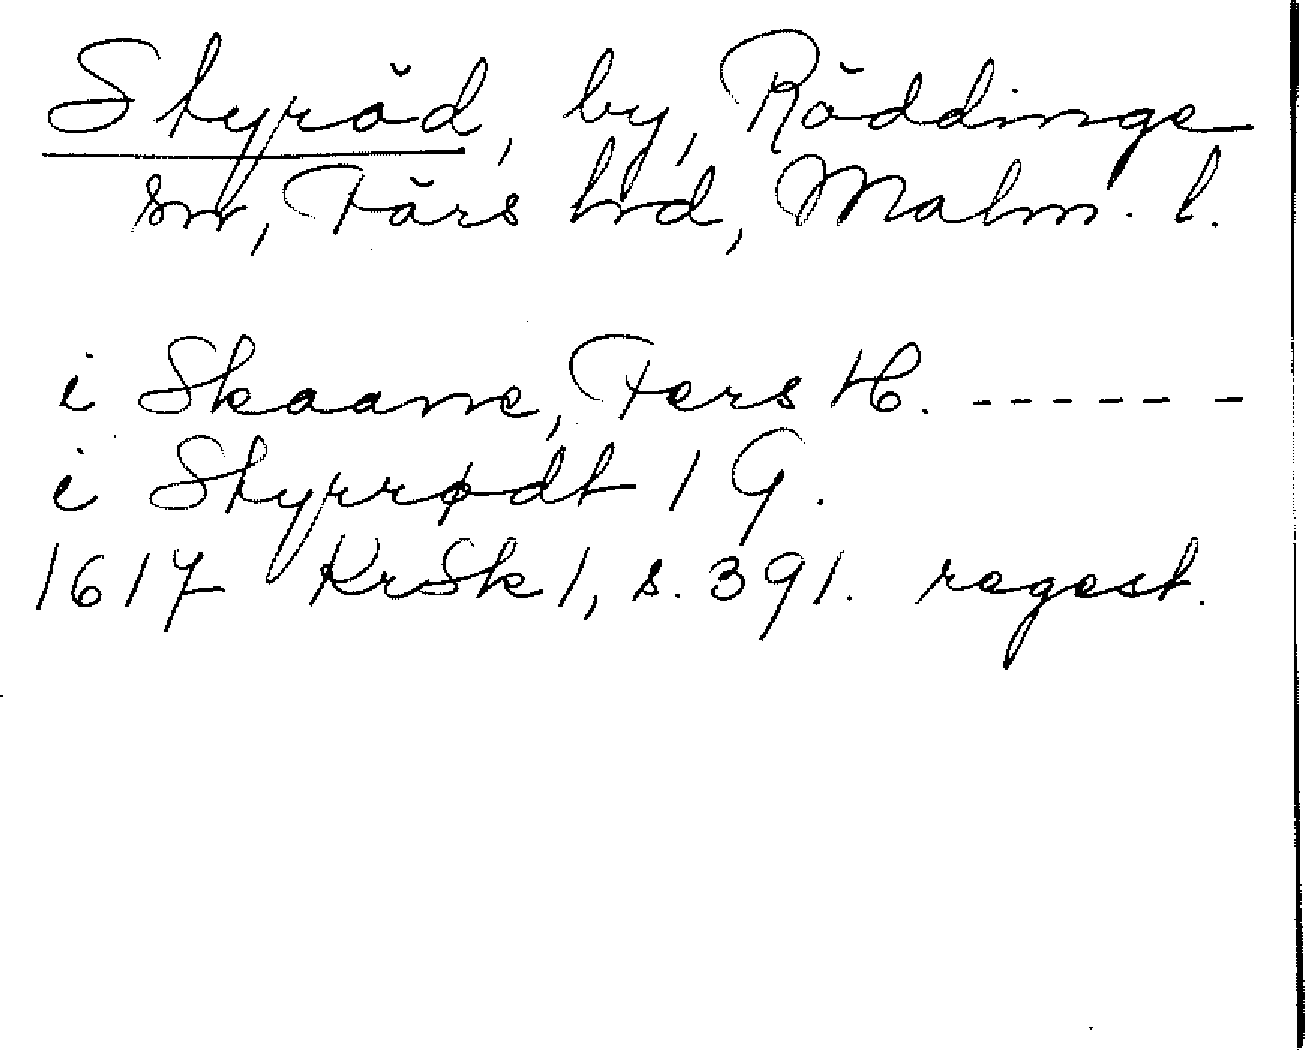 Styröd, by, Röddinge
sn, Färs hrd, Malm. l.
i Skaane, Fers H. ------
i Styrrødt 1 G.
1617 KrSk 1, s. 391. regest.